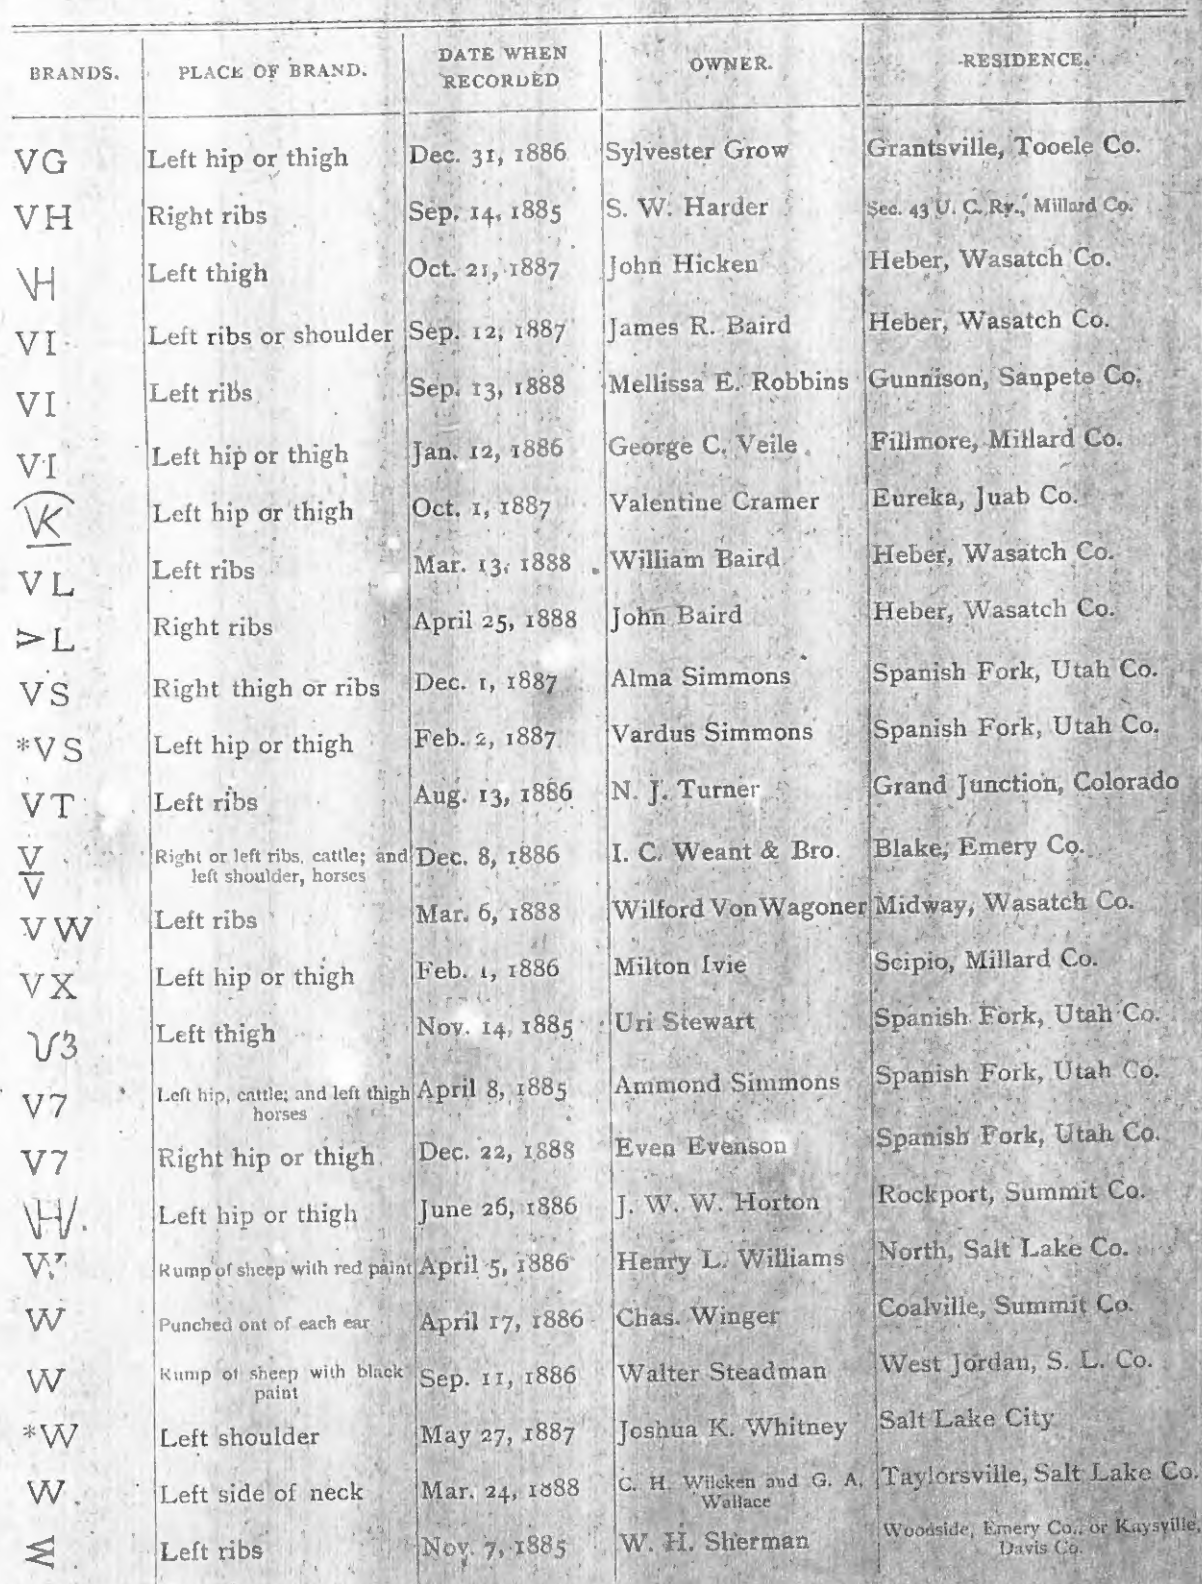 BRANDS. PLACE OF BRAND. DATE WHEN RECORDED OWNER. RESIDENCE.
VG Left hip or thigh Dec. 31, 1886 Sylvester Grow Grantsville, Tooele Co.
VH Right ribs Sep. 14, 1885 S. W. Harder Sec. 43 U. C. Ry., Millard Co.
VH Left thigh Oct. 21, 1887 John Hicken Heber, Wasatch Co.
VI Left ribs or shoulder Sep. 12, 1887 James R. Baird Heber, Wasatch Co.
VI Left ribs Sep. 13, 1888 Mellissa E. Robbins Gunnison, Sanpete Co.
VI Left hip or thigh Jan. 12, 1886 George C. Veile Fillmore, Millard Co.
VK Left hip or thigh Oct. 1, 1887 Valentine Cramer Eureka, Juab Co.
VL Left ribs Mar. 13, 1888 William Baird Heber, Wasatch Co.
>L Right ribs April 25, 1888 John Baird Heber, Wasatch Co.
VS Right thigh or ribs Dec. 1, 1887 Alma Simmons Spanish Fork, Utah Co.
*VS Left hip or thigh Feb. 2, 1887 Vardus Simmons Spanish Fork, Utah Co.
VT Left ribs Aug. 13, 1886 N. J. Turner Grand Junction, Colorado
V Right or left ribs, cattle; and Dec. 8, 1886 I. C. Weant & Bro. Blake, Emery Co.
V left shoulder, horses
VW Left ribs Mar. 6, 1888 Wilford VonWagoner Midway, Wasatch Co.
VX Left hip or thigh Feb. 1, 1886 Milton Ivie Scipio, Millard Co.
V3 Left thigh Nov. 14, 1885 Uri Stewart Spanish Fork, Utah Co.
V7 Left hip, cattle; and left thigh April 8, 1885 Ammond Simmons Spanish Fork, Utah Co.
horses
V7 Right hip or thigh Dec. 22, 1888 Even Evenson Spanish Fork, Utah Co.
Left hip or thigh June 26, 1886 J. W. W. Horton Rockport, Summit Co.
W Rump of sheep with red paint April 5, 1886 Henry L. Williams North, Salt Lake Co.
W Punched out of each ear April 17, 1886 Chas. Winger Coalville, Summit Co.
W Rump of sheep with black Sep. 11, 1886 Walter Steadman West Jordan, S. L. Co.
paint
*W Left shoulder May 27, 1887 Joshua K. Whitney Salt Lake City
W Left side of neck Mar. 24, 1888 C. H. Wilcken and G. A. Taylorsville, Salt Lake Co.
Wallace
Left ribs Nov. 7, 1885 W. H. Sherman Woodside, Emery Co., or Kaysville,
Davis Co.